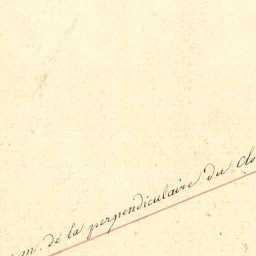 m. de la perpendiculaire du Clo